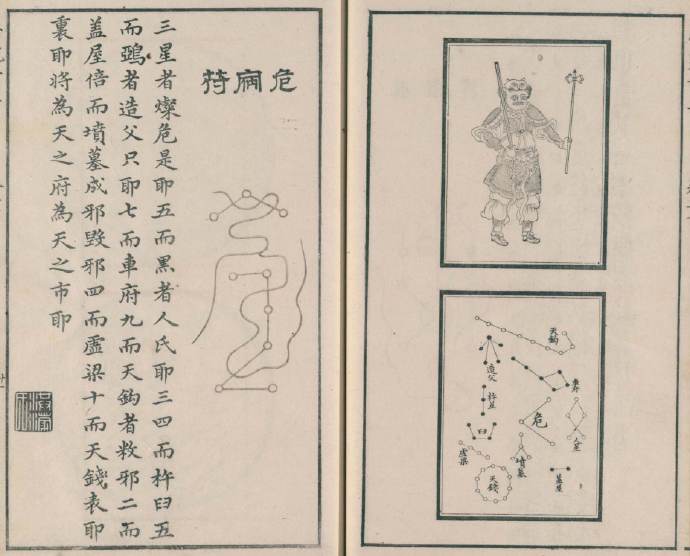 天鈎
造父
車府
杵
臼
危
人星
虛梁
墳墓
盖屋
天錢
危符
三星者燦危是耶五而黑者人氏耶三四而杵臼五
而鵶者造父只耶七而車府九而天鈎者救邪二而
盖屋倍而墳墓成邪毀邪四而虛梁十而天錢表耶
裏耶將為天之府為天之市耶